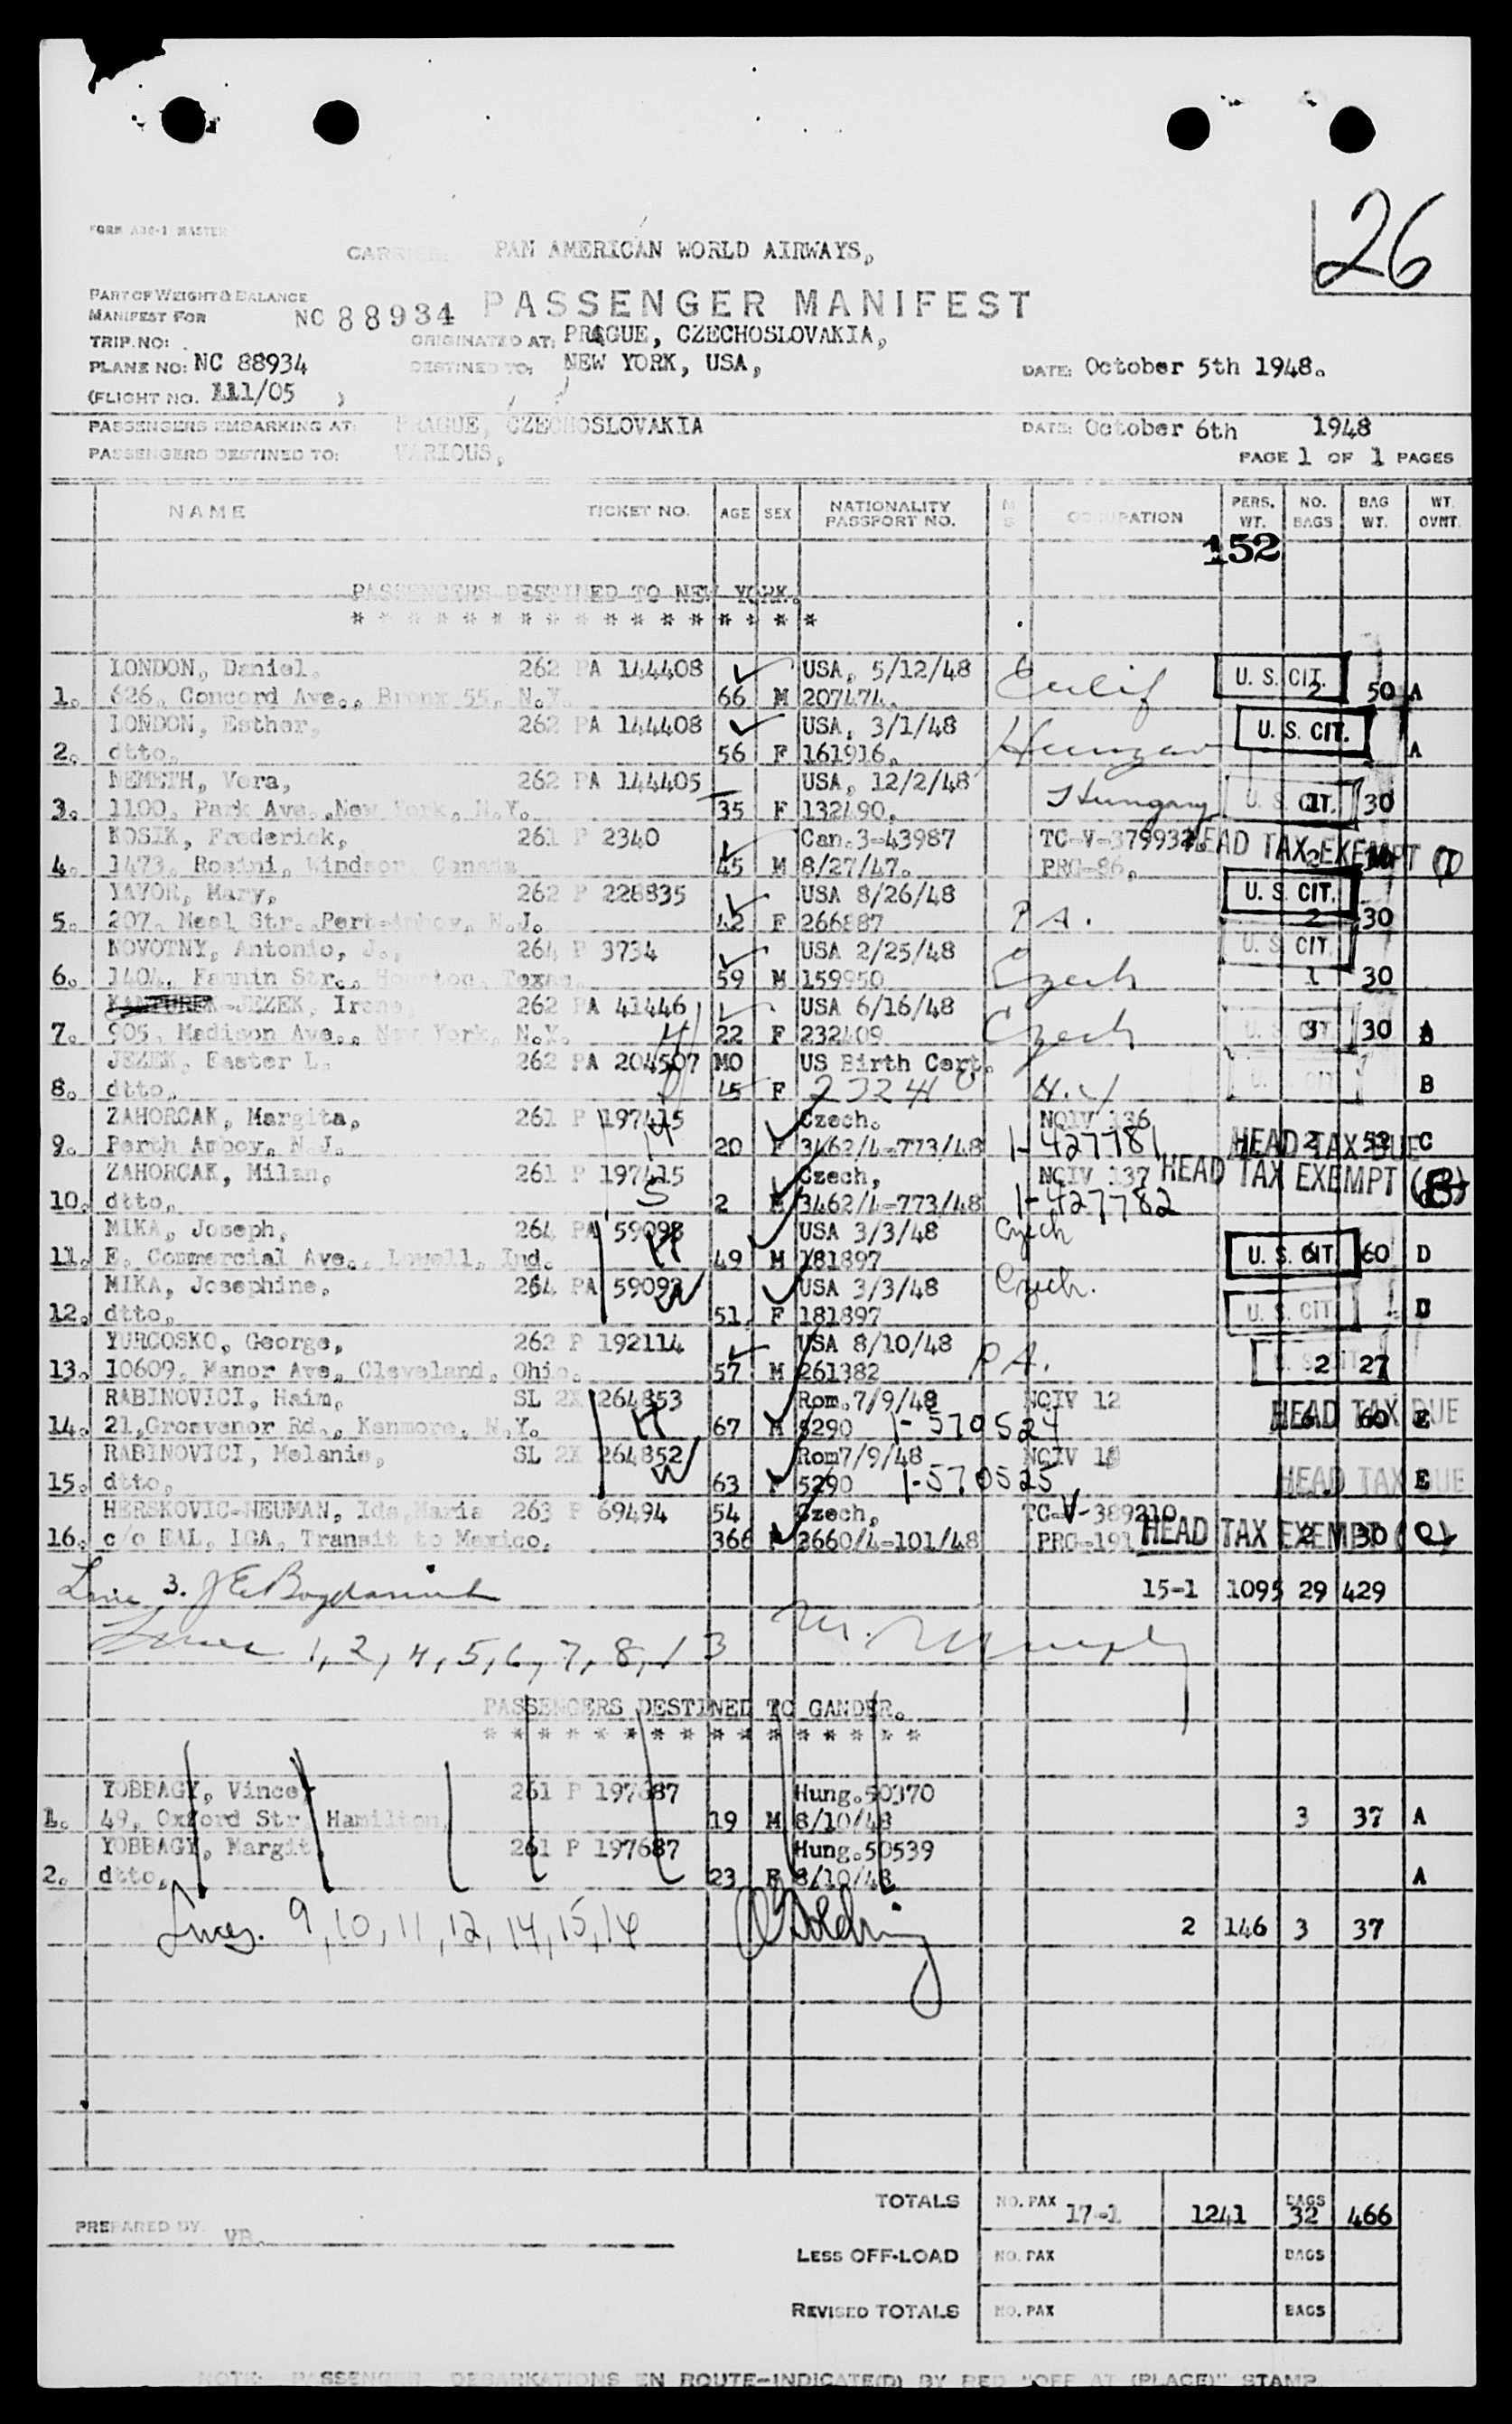 26
FORM A30-1 MASTER
CARRIER: PAN AMERICAN WORLD AIRWAYS,
PART OF WEIGHT & BALANCE
MANIFEST FOR NC 88934 PASSENGER MANIFEST
TRIP. NO: ORIGINATED AT: PRAGUE, CZECHOSLOVAKIA,
PLANE NO: NC 88934 DESTINED TO: NEW YORK, USA, DATE: October 5th 1948.
(FLIGHT NO. 111/05 )
PASSENGERS EMBARKING AT: PRAGUE, CZECHOSLOVAKIA DATE: October 6th 1948
PASSENGERS DESTINED TO: VARIOUS, PAGE 1 OF 1 PAGES
NAME TICKET NO. AGE SEX NATIONALITY PASSPORT NO. M S OCCUPATION PERS. WT. NO. BAGS BAG WT. WT. OVMT.
152
PASSENGERS DESTINED TO NEW YORK.
* * * * * * * * * * * * * * * * *
LONDON, Daniel, 262 PA 144408 USA, 5/12/48 U. S. CIT.
1. 626, Concord Ave., Bronx 55, N.Y. 66 M 207474. 2 50 A
LONDON, Esther, 262 PA 144408 USA, 3/1/48 U. S. CIT.
2. dtto, 56 F 161916, A
NEMETH, Vera, 262 PA 144405 USA, 12/2/48 Hungary U. S. CIT.
3. 1100, Park Ave.,New York, N.Y. 35 F 132490, 30
KOSIK, Frederick, 261 P 2340 Can.3-43987 TC-V-379932 HEAD TAX EXEMPT
4. 1473, Rosini, Windsor, Canada 45 M 8/27/47. PRG-86, 2
YAVOR, Mary, 262 P 228835 USA 8/26/48 U. S. CIT.
5. 207, Neal Str.,Perth-Amboy, N.J. 42 F 266887 P A. 2 30
NOVOTNY, Antonio, J., 264 P 3734 USA 2/25/48 U. S. CIT.
6. 1404, Fannin Str., Houston, Texas, 59 M 159950 Czech 1 30
JEZEK, Irene, 262 PA 41446 USA 6/16/48
7. 905, Madison Ave., New York, N.Y. 22 F 232409 Czech U. S. CIT. 3 30 A
JEZEK, Easter L. 262 PA 204507 MO US Birth Cert.
8. dtto, 15 F N.Y U. CIT B
ZAHORCAK, Margita, 261 P 197415 Czech. NQIV 136
9. Perth Amboy, N.J. 20 F 3462/4-773/48 1-427781 HEAD TAX DUE 2 52 C
ZAHORCAK, Milan, 261 P 197415 Czech, NQIV 137 HEAD TAX EXEMPT
10. dtto, 2 M 3462/4-773/48 1-427782
MIKA, Joseph, 264 PA 59093 USA 3/3/48 Czech
11. E. Commercial Ave., Lowell, Ind. 49 M 181897 U. S. CIT. 60 D
MIKA, Josephine, 264 PA 59093 USA 3/3/48 Czech.
12. dtto, 51 F 181897 U. S. CIT. D
YURCOSKO, George, 262 P 192114 USA 8/10/48
13. 10609, Manor Ave, Cleveland, Ohio. 57 M 261382 P A. 2 27
RABINOVICI, Haim, SL 2X 264853 Rom.7/9/48 NQIV 12
14. 21,Grosvenor Rd., Kenmore, N.Y. 67 M 5290 1-570524 HEAD TAX DUE 60 E
RABINOVICI, Melanie, SL 2X 264852 Rom7/9/48 NQIV
15. dtto, 63 F 5290 1-570525 HEAD TAX DUE E
HERSKOVIC-NEUMAN, Ida,Maria 263 P 69494 54 Czech, TC-V-389210
16. c/o EAL, IGA, Transit to Mexico. 366 F 2660/4-101/48 PRG-191 HEAD TAX EXEMPT 2 30
Line 3. 15-1 1095 29 429
Lines 1, 2, 4, 5, 6, 7, 8, 13 M. Murphy
PASSENGERS DESTINED TO GANDER.
* * * * * * * * * * * * * * * *
YOBBAGY, Vince, 261 P 197687 Hung.50370
1. 49, Oxford Str, Hamilton, 19 M 8/10/48 3 37 A
YOBBAGY, Margit, 261 P 197687 Hung.50539
2. dtto, 23 F 8/10/48 A
Lines. 9, 10, 11, 12, 14, 15, 16 2 146 3 37
TOTALS NO. PAX 17-1 1241 BAGS 32 466
PREPARED BY VB.
LESS OFF-LOAD NO. PAX BAGS
REVISED TOTALS NO. PAX BAGS
NOTE: PASSENGER DEBARKATIONS EN ROUTE-INDICATE(D) BY RED "OFF AT (PLACE)" STAMP